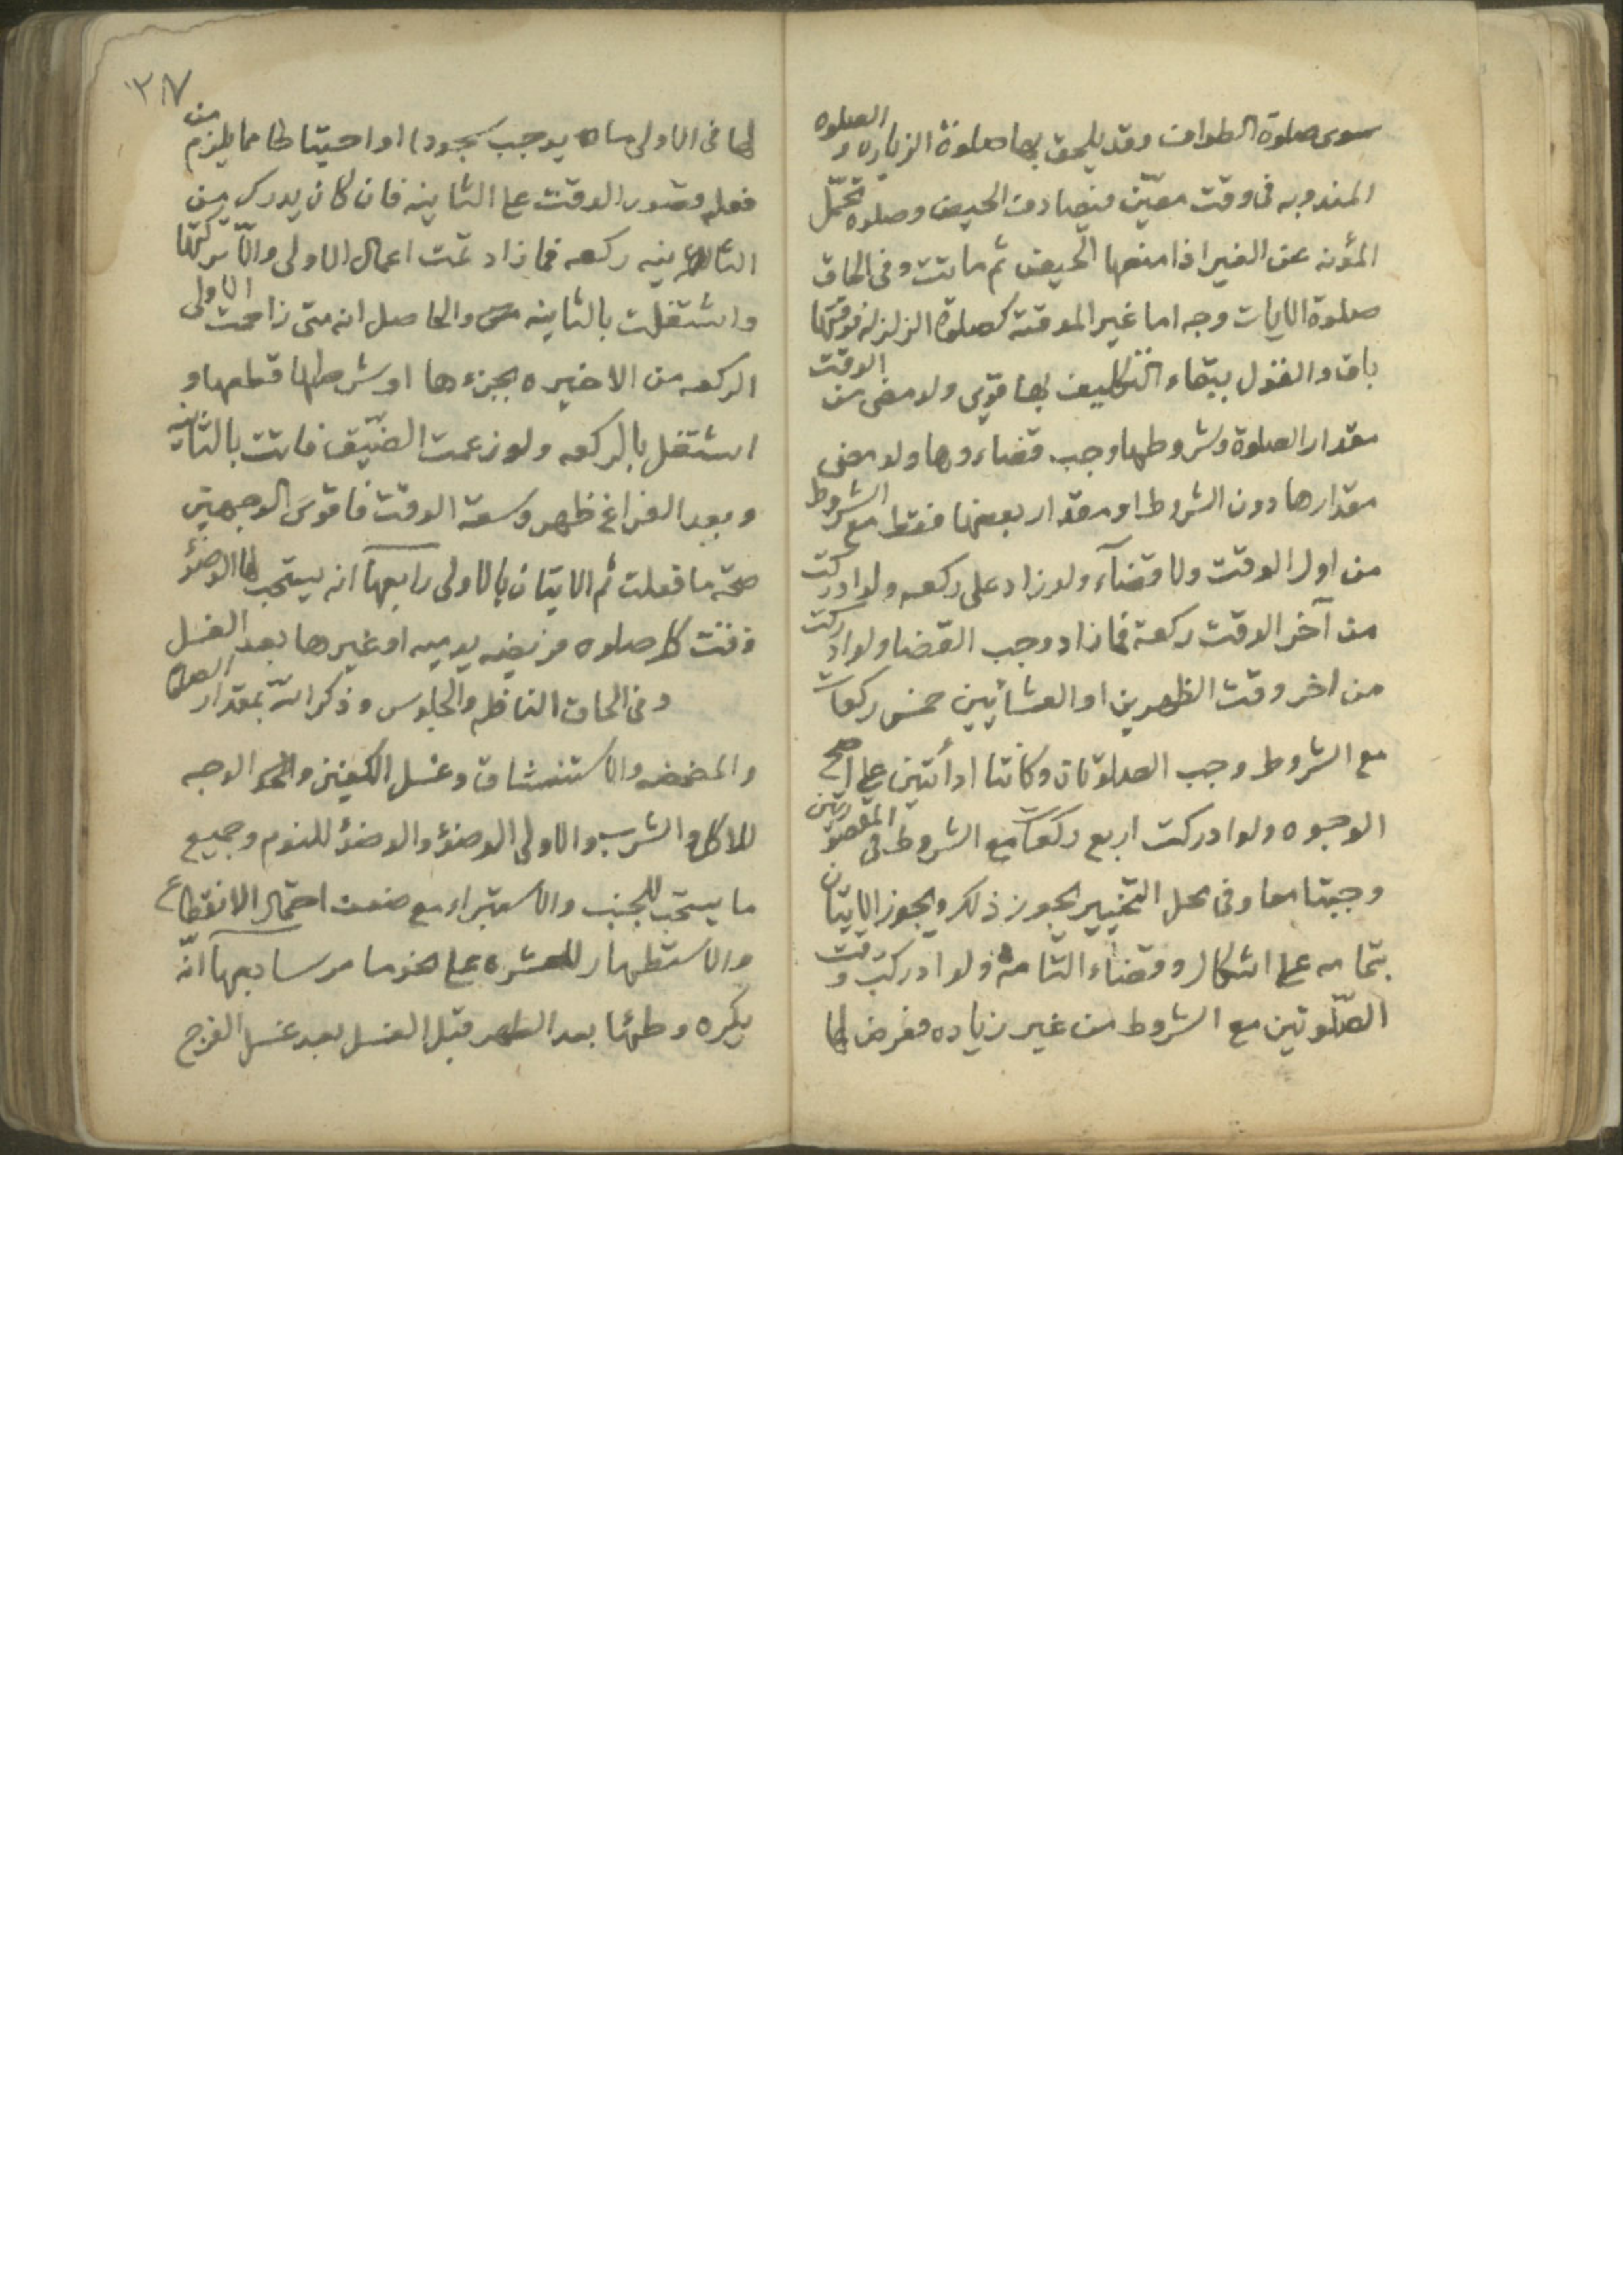 سوى صلوة الطواف وقد يلحق بها صلوة الزياره و الصلوه
المندوبه فى وقت معيّن فيصادف الحيض وصلوه تحمّل
المؤنه عن الغير اذا منعها الحيض ثم ماتت وفى الحاق
صلوة الايات وجه اما غير الموقته كصلوة الزلزله فوقتها
باق والقول ببقاء التكليف بها قوى ولو مضى من الوقت
مقدار الصلوة وشروطها وجب قضاءوها ولو مضى
مقدارها دون الشروط او مقدار بعضها فقط مع الشروط
من اول الوقت ولا قضآء ولو زاد على ركعه ولو ادركت
من آخر الوقت ركعة فما زاد وجب القضا ولو ادركت
من اخر وقت الظهرين او العشائين خمس ركعات
مع الشروط وجب الصلوتان وكانتا ادائتين على اصح
الوجوه ولو ادركت اربع ركعات مع الشروط فى المقصورتين
وجبتا معا وفى محل التخيير يجوز ذلك ويجوز الايتان
بتمامه على اشكال وقضاء التامة ولو ادركت وقت
الصّلوتين مع الشروط من غير زياده فعرض لها
٢٨٧
لها فى الاولى ما يوجب سجودا او احتياطا مما يلزم من
فعله قصور الوقت على الثانيه فان كان يدرك من
الثانيه ركعه فما زاد تمّت اعمال الاولى والّا تركتها
واشتغلت بالثانيه والحاصل انه متى زاحمت الاولى
الركعه من الاخيره بجزءها او شرطها قطعها و
اشتغل بالركعه ولو زعمت الضيّق فاتت بالثانيه
وبعد الفراغ ظهر سعة الوقت فاقوى الوجهين
صحة ما فعلت ثم الايتان بالاولى رابعهآ انه يستحب لها الوضؤ
وقت كل صلوه فريضه يوميه او غيرها بعد الغسل
وفى الحاق النافله والجلوس وذكر الله بمقدار الصلوة
والمضمضه والاستنشاق وغسل الكفين و الوجه
للاكل والشرب والاولى الوضؤ والوضؤ للنوم وجميع
ما يستحب للجنب والاستبراء مع ضعف احتمال الانقطاع
والاستظهار للعشره على نحو ما مر سابعهآ انّه
يكره وطئها بعد الطهر قبل الغسل بعد غسل الفرج